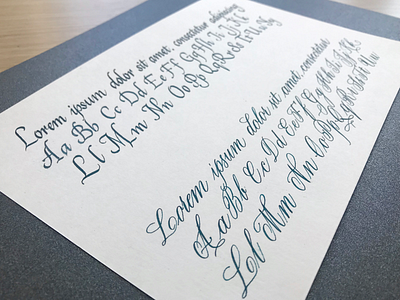 Lorem ipsum dolor sit amet, consectetur adipiscing
Aa Bb Cc Dd Ee Ff Gg Hh Ii
Ll Mm Nn Oo Pp Qq Rr Ss
Lorem ipsum dolor sit amet, consectetur
Aa Bb Cc Dd Ee Ff Gg Hh
Ll Mm Nn Oo Pp Qq Rr